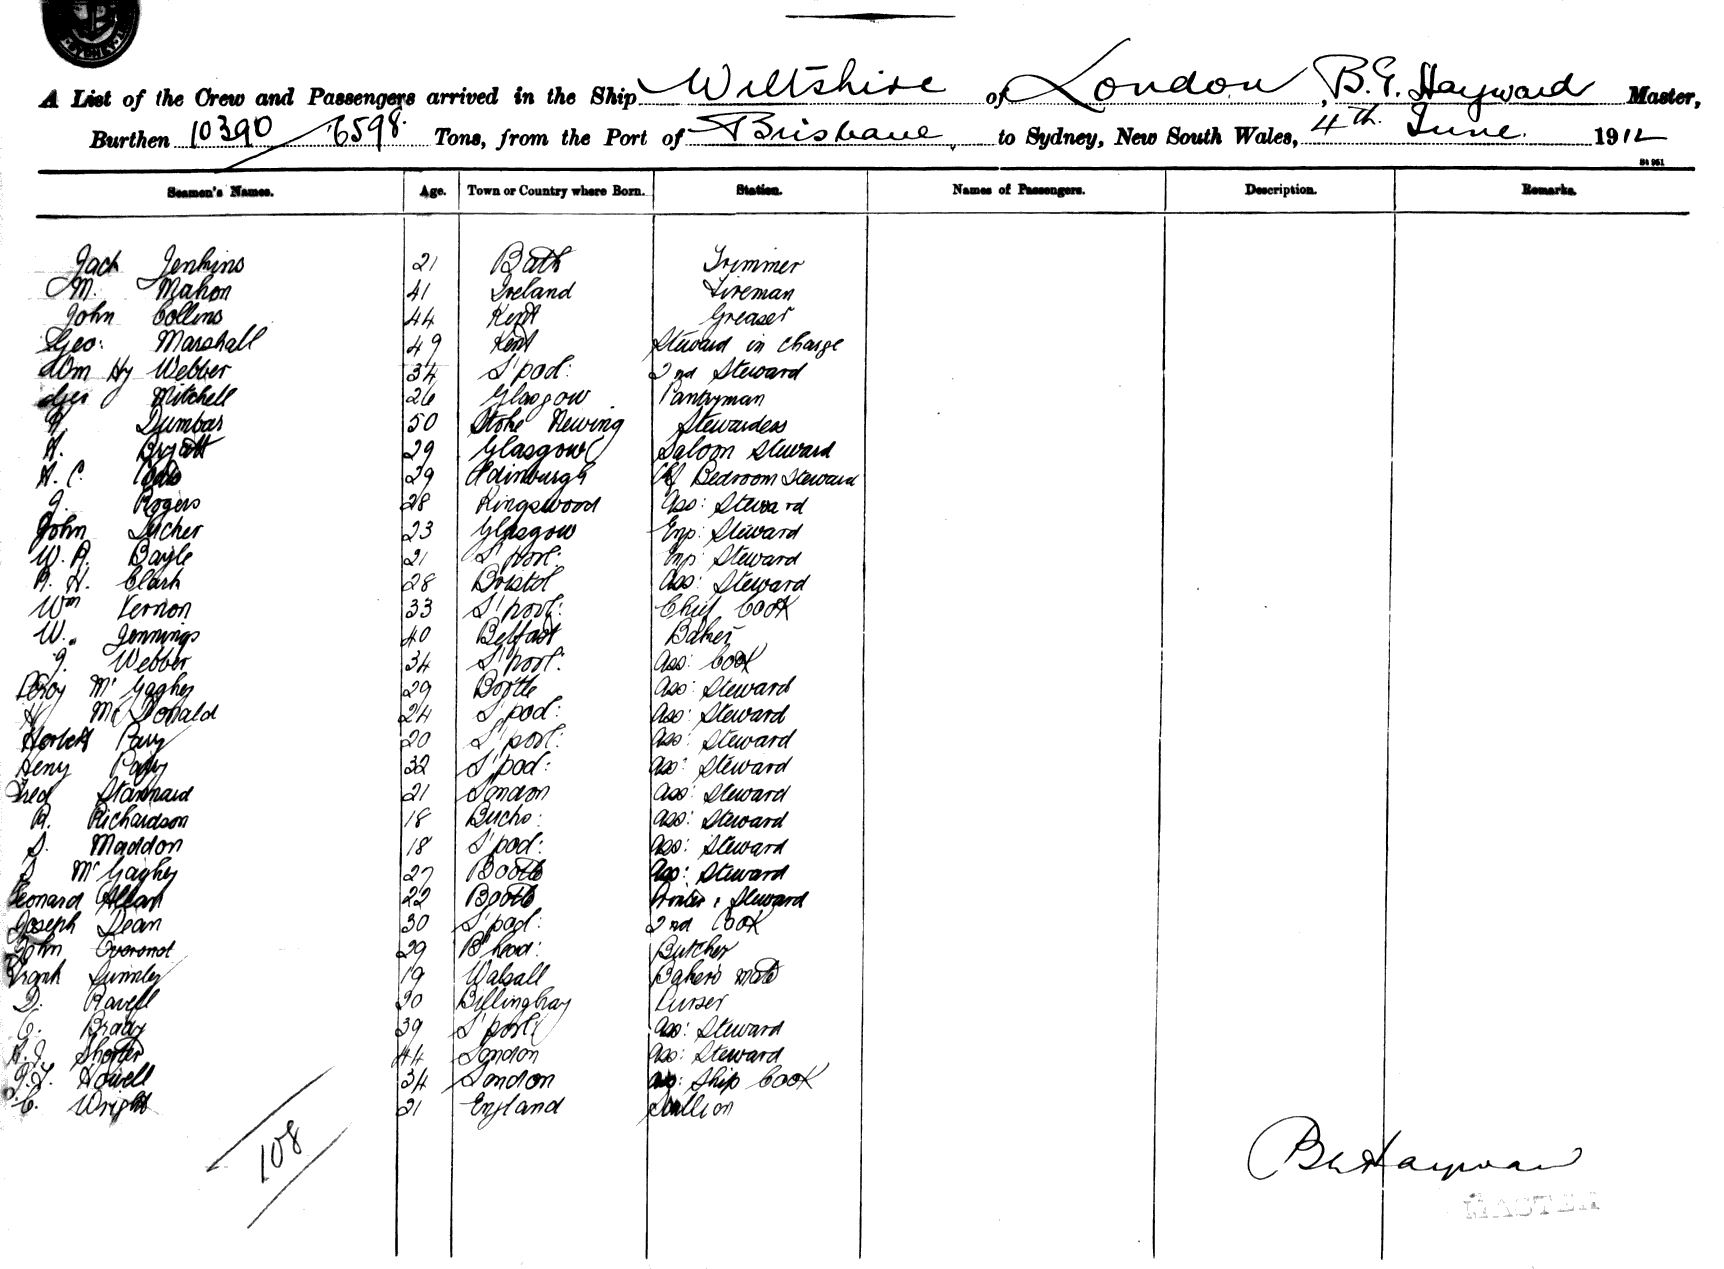 A List of the Crew and Passengers arrived in the Ship Wiltshire of London, B. G. Hayward Master,
Burthen 10390 / 6598 Tons, from the Port of Brisbane, to Sydney, New South Wales, 4th June 1912
Seamen's Names. Age. Town or Country where Born. Station. Names of Passengers. Description. Remarks.
Jack Jenkins 21 Bath Trimmer
M. Mahon 41 Ireland Fireman
John Collins 44 Kent Greaser
Geo: Marshall 49 Kent Steward in charge
Wm Hy Webber 34 L'pool: 2nd Steward
Geo Mitchell 26 Glasgow Pantryman
Dunbar 50 Stoke Newing Stewardess
29 Glasgow Saloon Steward
A. C. 29 Edinburgh Bedroom Steward
J. Rogers 28 Kingswood Ass: Steward
John 23 Glasgow Steward
W. A. Bayle 21 L'pool: Steward
R. H. Clark 28 Bristol Ass: Steward
Wm Vernon 33 L'pool: Chief Cook
W. Jennings 40 Belfast Baker
J. Webber 34 L'pool: Ass: Cook
Percy McGaghey 29 Bootle Ass: Steward
McDonald 24 L'pool: Ass: Steward
Herbert Parry 20 L'pool: Ass: Steward
Henry Parry 32 L'pool: Ass: Steward
Fred Stannard 21 London Ass: Steward
R. Richardson 18 Bucks: Ass: Steward
S. Maddon 18 L'pool: Ass: Steward
McGaghey 27 Bootle Ass: Steward
Leonard Allan 22 Bootle Steward
Joseph Dean 30 L'pool: 2nd Cook
John 29 B'head: Butcher
Frank 19 Walsall Baker's mate
D. Ravell 20 Billinghay Purser
C. Brady 39 L'pool: Ass: Steward
Shorter 44 London Ass: Steward
Howell 34 London Ass: Ship Cook
C. Wright 21 England Scullion
108
Hayward
MASTER